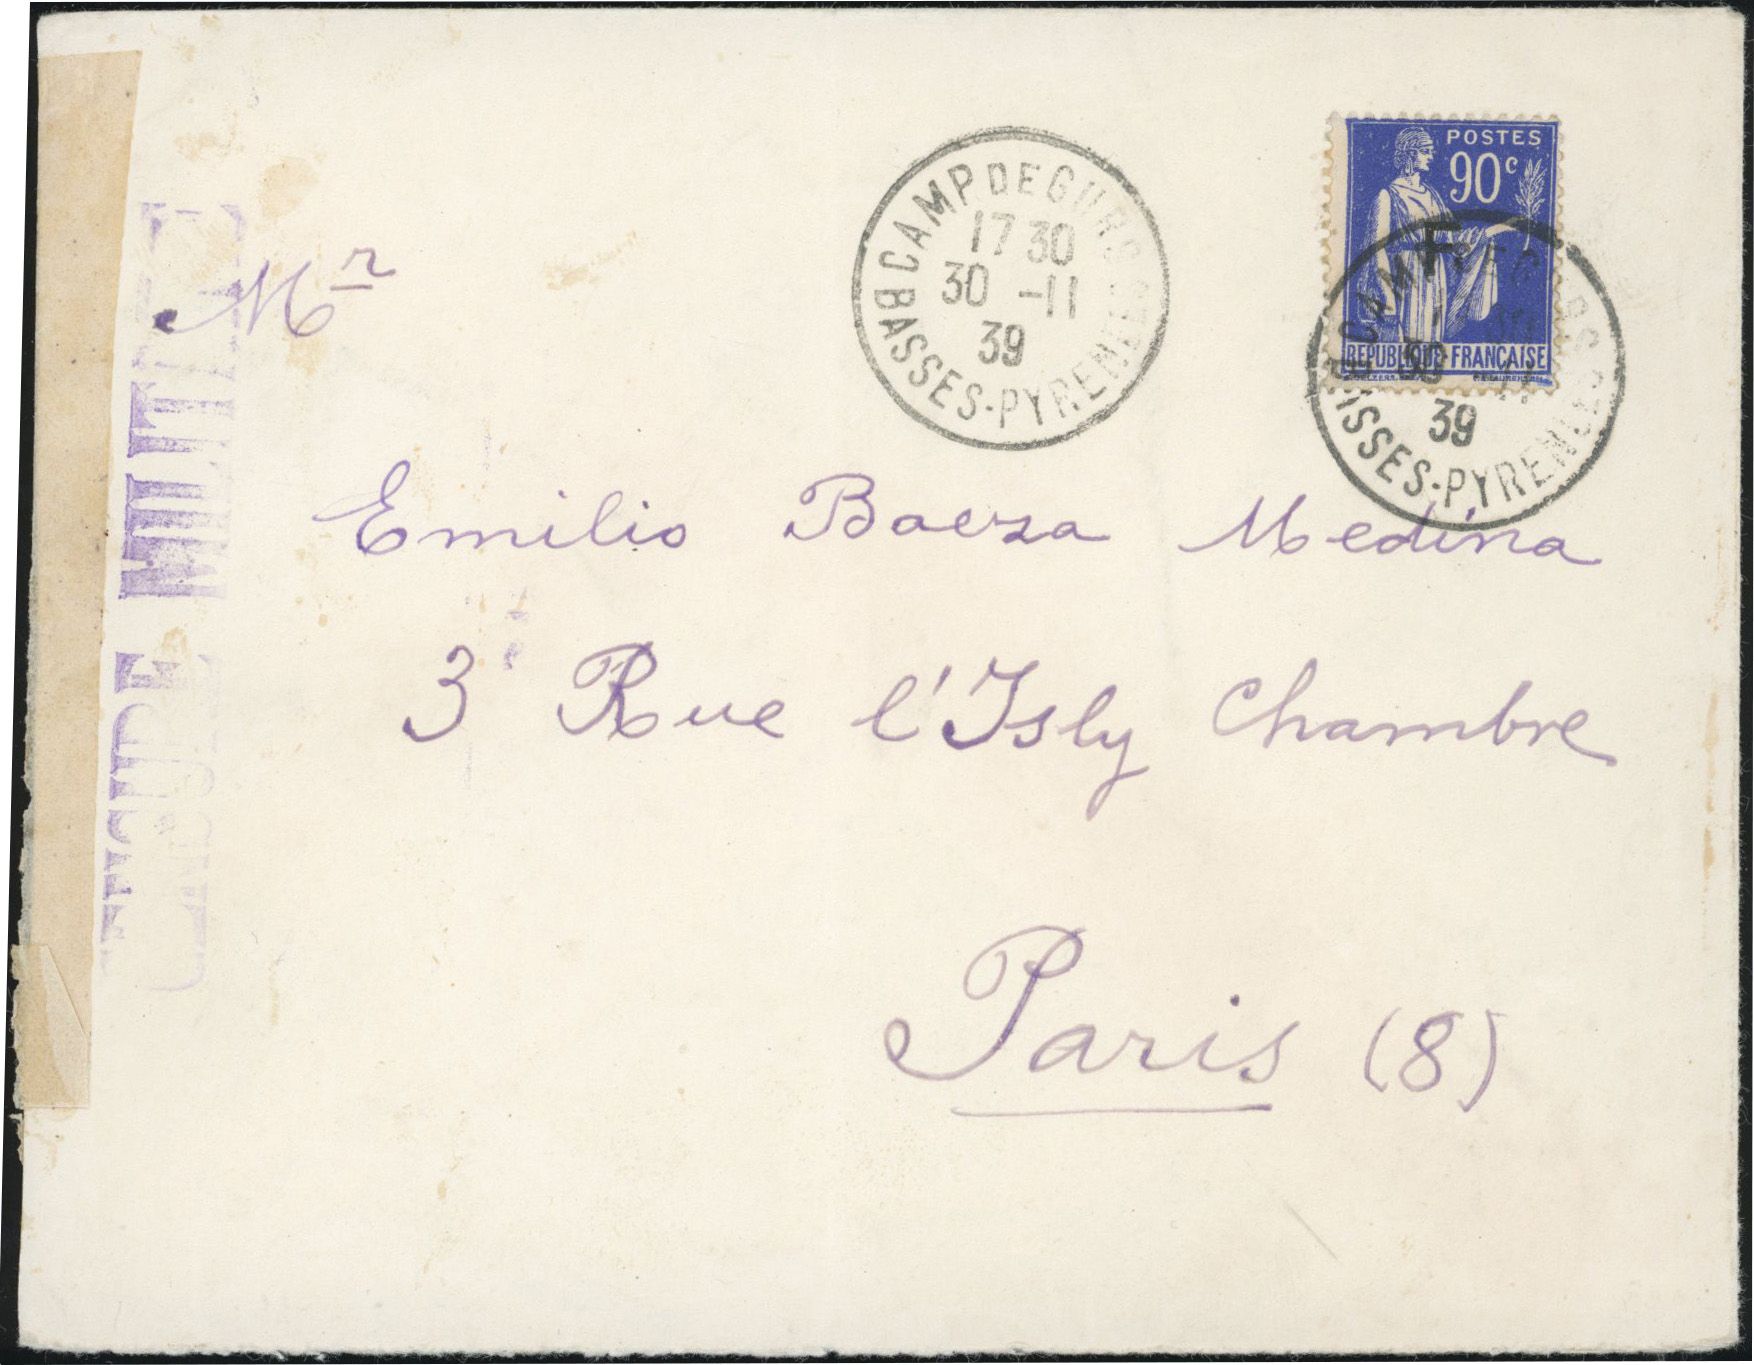 POSTES
90c
F
REPUBLIQUE FRANÇAISE
CAMP DE GURS
17 30
30 -11
39
BASSES-PYRENEES
CAMP DE GURS
30 -11
39
BASSES-PYRENEES
Mr
Emilio Baeza Medina
3 Rue l'Isly Chambre
Paris (8)